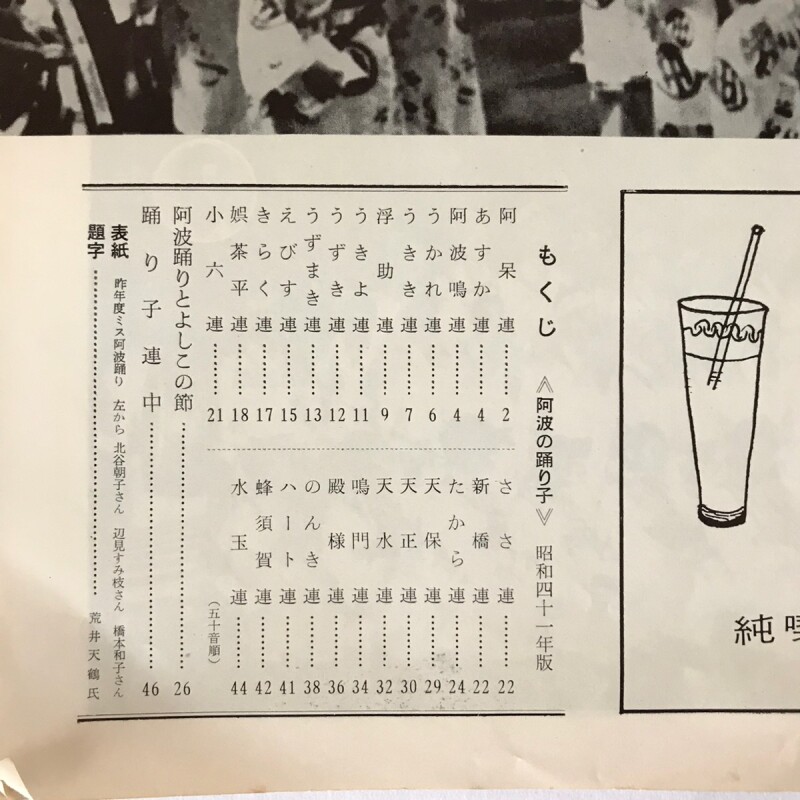 もくじ 《阿波の踊り子》 昭和四十一年版
阿呆連………2
あすか連………4
阿波鳴連………4
うかれ連………6
うきき連………7
浮助連………9
うきよ連………11
うずき連………12
うずまき連………13
えびす連………15
きらく連………17
娯茶平連………18
小六連………21
ささ連………22
新橋連………22
たから連………24
天保連………29
天正連………30
天水連………32
鳴門連………34
殿様連………36
のんき連………38
ハート連………41
蜂須賀連………42
水玉連………44
(五十音順)
阿波踊りとよしこの節………26
踊り子連中………46
表紙 昨年度ミス阿波踊り 左から 北谷朝子さん 辺見すみ枝さん 橋本和子さん
題字………荒井天鶴氏
純喫